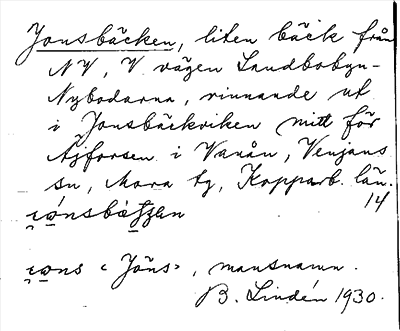 Jonsbäcken, liten bäck från
NV, V vägen Landbobyn-
Nybodarna, rinnande ut
i Jonsbäckviken mitt för
Äjforsen i Vanån, Venjans
sn, Mora tg, Kopparb. län.
14
< Jöns>, mansnamn.
B. Lindén 1930.